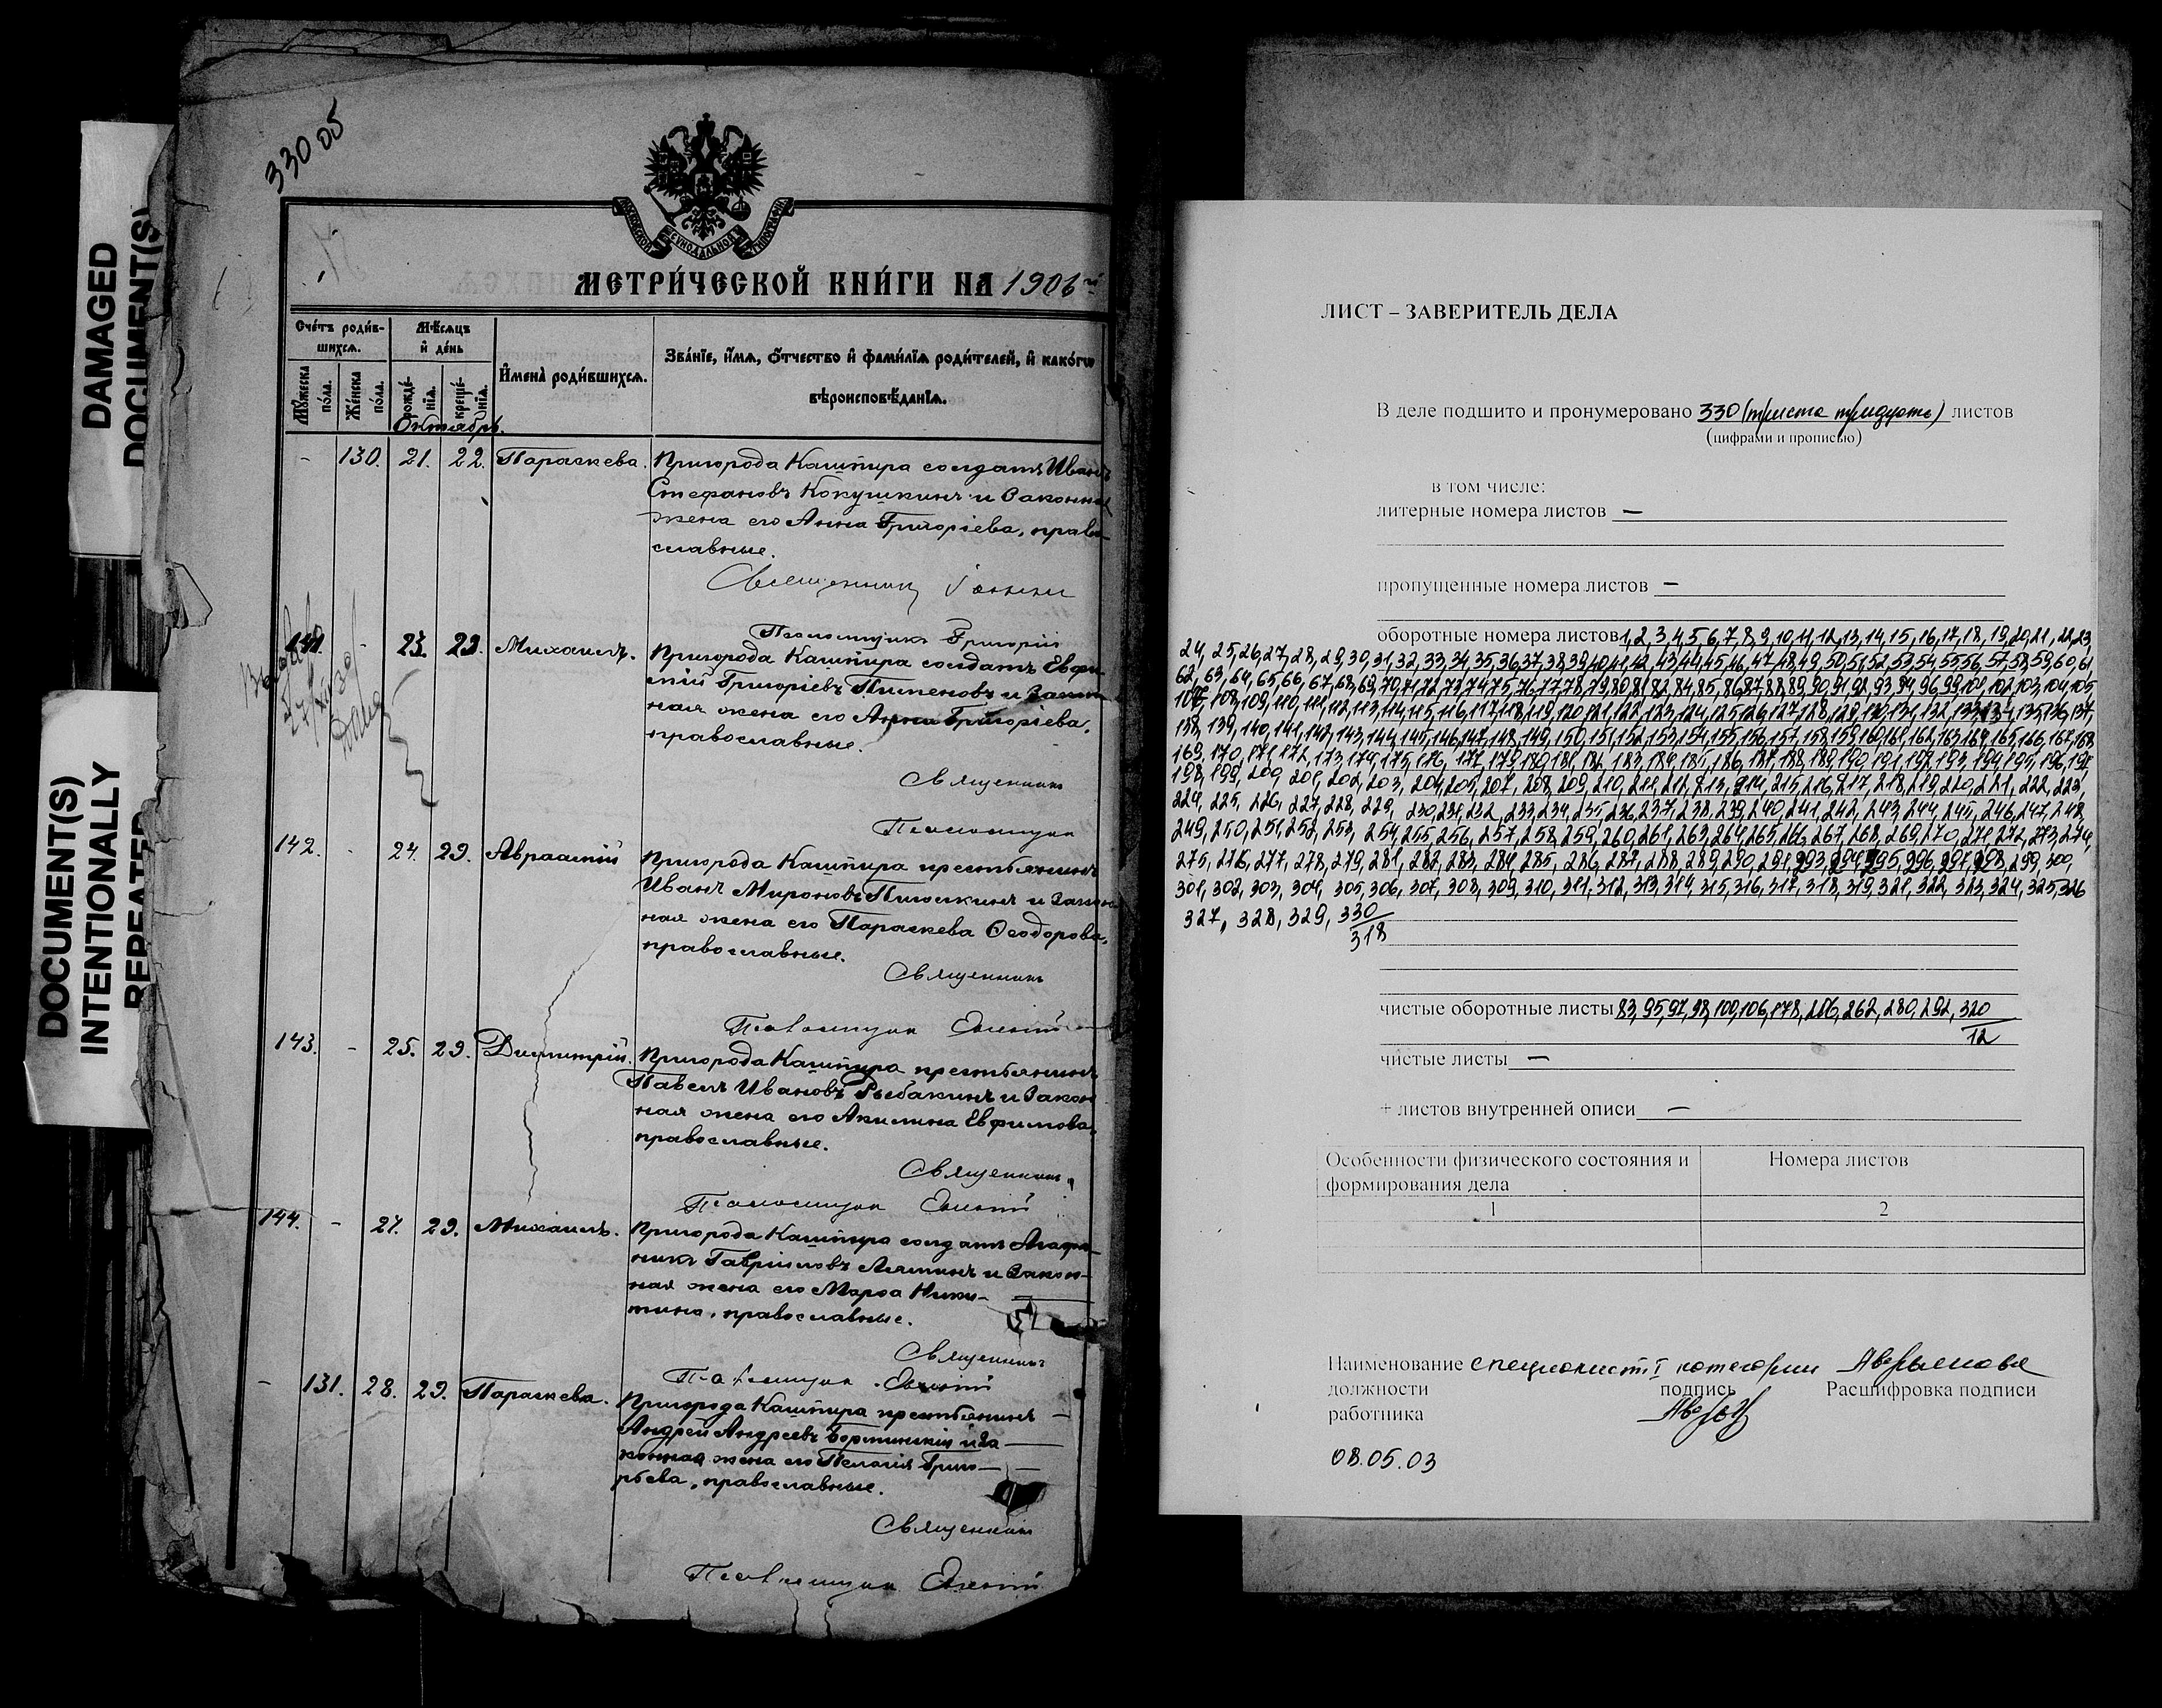 DAMAGED
DOCUMENT(S)
DOCUMENT(S)
INTENTIONALLY
REPEATED
330 об
МОСКОВСКОЙ СѴНОДАЛЬНОЙ ТИПОГРАФІИ
МЕТРИ́ЧЕСКОЙ КНИ́ГИ НА 1906 й
Сче́тъ роди́в-
шихся.
Мѣ́сяцъ
и҆ де́нь
И҆мена̀ роди́вшихся.
Зва́нїе, и҆́мя, ѻ҆́тчество и҆ фами́лїя роди́телей, и҆ како́гѡ
вѣроисповѣ́данїя.
Мꙋ́жеска по́ла.
Же́нска по́ла.
рожде́нїя.
креще́нїя.
Октябрь.
- 130. 21. 22. Параскева. Пригорода Кашпира солдатъ Иванъ
Стефановъ Кокушкинъ и законная
жена его Анна Григоріева, право-
славные.
Священник Іоанн
Псаломщикъ Григорій
141. - 23. 29. Михаилъ. Пригорода Кашпира солдатъ Евфи-
мій Григоріевъ Пименовъ и закон-
ная жена его Анна Григоріева,
православные.
Священникъ
Псаломщик
142. - 24. 29. Авраамій Пригорода Кашпира крестьянинъ
Иванъ Мироновъ и закон-
ная жена его Параскева Ѳеодорова,
православные.
Священникъ
Псаломщик
143. - 25. 29. Димитрій. Пригорода Кашпира крестьянинъ
Павелъ Ивановъ Рыбакинъ и закон-
ная жена его Акилина Евфимова,
православные.
Священникъ
Псаломщик
144. - 27. 29. Михаилъ. Пригорода Кашпира солдатъ Агафо-
никъ Гавріиловъ и закон-
ная жена его Марѳа Ники-
тина, православные.
Священникъ
Псаломщик
- 131. 28. 29. Параскева. Пригорода Кашпира крестьянинъ
Андрей Андреевъ и за-
конная жена его Пелагія Григо-
рьева, православные.
Священникъ
Псаломщик
ЛИСТ – ЗАВЕРИТЕЛЬ ДЕЛА
В деле подшито и пронумеровано 330 (триста тридцать) листов
(цифрами и прописью)
в том числе:
литерные номера листов —
пропущенные номера листов —
оборотные номера листов 1, 2, 3, 4, 5, 6, 7, 8, 9, 10, 11, 12, 13, 14, 15, 16, 17, 18, 19, 20, 21, 22, 23,
24, 25, 26, 27, 28, 29, 30, 31, 32, 33, 34, 35, 36, 37, 38, 39, 40, 41, 42, 43, 44, 45, 46, 47, 48, 49, 50, 51, 52, 53, 54, 55, 56, 57, 58, 59, 60, 61
62, 63, 64, 65, 66, 67, 68, 69, 70, 71, 72, 73, 74, 75, 76, 77, 78, 79, 80, 81, 82, 84, 85, 86, 87, 88, 89, 90, 91, 92, 93, 94, 96, 99, 101, 102, 103, 104, 105,
107, 108, 109, 110, 111, 112, 113, 114, 115, 116, 117, 118, 119, 120, 121, 122, 123, 124, 125, 126, 127, 128, 129, 130, 131, 132, 133, 134, 135, 136, 137,
138, 139, 140, 141, 142, 143, 144, 145, 146, 147, 148, 149, 150, 151, 152, 153, 154, 155, 156, 157, 158, 159, 160, 161, 162, 163, 164, 165, 166, 167, 168,
169, 170, 171, 172, 173, 174, 175, 176, 177, 179, 180, 181, 182, 183, 184, 185, 186, 187, 188, 189, 190, 191, 192, 193, 194, 195, 196, 197,
198, 199, 200, 201, 202, 203, 204, 205, 207, 208, 209, 210, 211, 212, 213, 214, 215, 216, 217, 218, 219, 220, 221, 222, 223,
224, 225, 226, 227, 228, 229, 230, 231, 232, 233, 234, 235, 236, 237, 238, 239, 240, 241, 242, 243, 244, 245, 246, 247, 248,
249, 250, 251, 252, 253, 254, 255, 256, 257, 258, 259, 260, 261, 263, 264, 265, 266, 267, 268, 269, 270, 271, 272, 273, 274,
275, 276, 277, 278, 279, 281, 282, 283, 284, 285, 286, 287, 288, 289, 290, 291, 293, 294, 295, 296, 297, 298, 299, 300,
301, 302, 303, 304, 305, 306, 307, 308, 309, 310, 311, 312, 313, 314, 315, 316, 317, 318, 319, 321, 322, 323, 324, 325, 326
327, 328, 329, 330
318
чистые оборотные листы 83, 95, 97, 98, 100, 106, 178, 206, 262, 280, 292, 320
12
чистые листы —
+ листов внутренней описи —
Особенности физического состояния и
формирования дела
Номера листов
1 2
Наименование специалист I категории Аверьянова
должности подпись Расшифровка подписи
работника
08.05.03